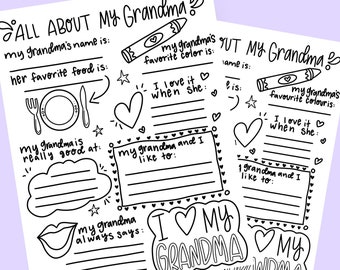 ALL ABOUT MY Grandma
my grandma's name is:
my grandma's
favorite color is:
her favorite food is:
I love it
when she:
my grandma is
really good at:
my grandma and I
like to:
my grandma
always says:
I ♡ MY
GRANDMA
OUT MY Grandma
my grandma's
favourite colour is:
I love it
when she:
grandma and I
like to:
I ♡ MY